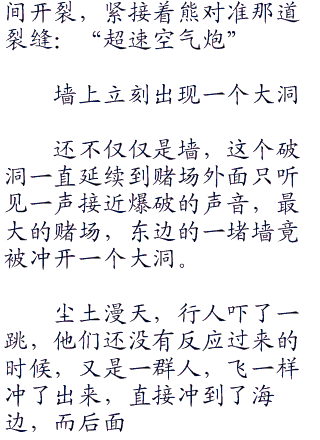 间开裂，紧接着熊对准那道
裂缝：“超速空气炮”
墙上立刻出现一个大洞
还不仅仅是墙，这个破
洞一直延续到赌场外面只听
见一声接近爆破的声音，最
大的赌场，东边的一堵墙竟
被冲开一个大洞。
尘土漫天，行人吓了一
跳，他们还没有反应过来的
时候，又是一群人，飞一样
冲了出来，直接冲到了海
边，而后面